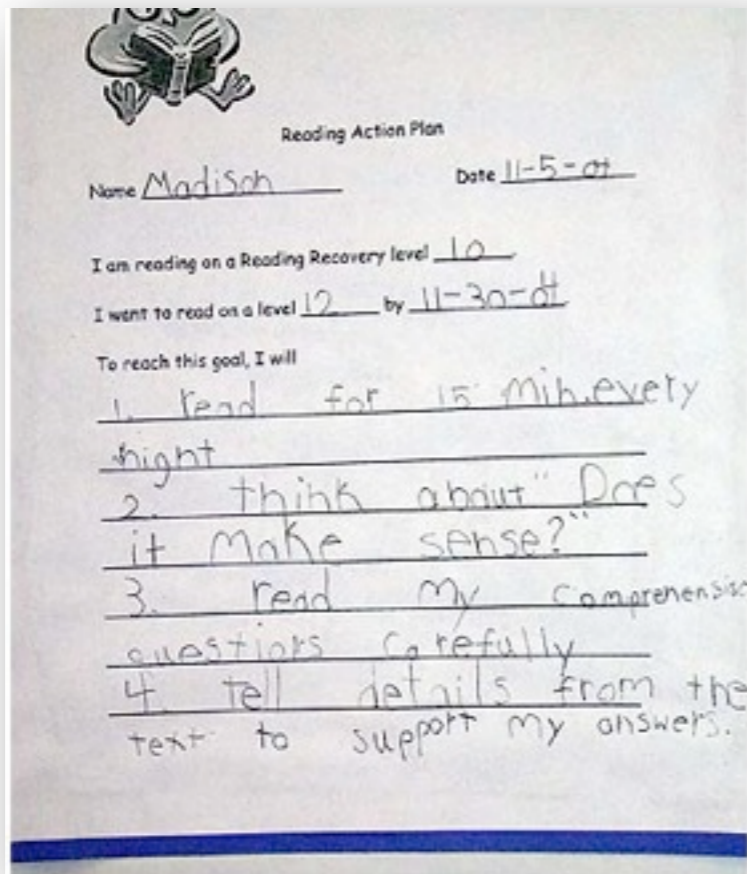 Reading Action Plan
Name Madison Date 11-5-07
I am reading on a Reading Recovery level 10
I want to read on a level 12 by 11-30-07
To reach this goal, I will
1. read for 15 min. every
night
2. think about "Does
it make sense?"
3. read my comprehensio
questions carefully
4. tell details from the
text to support my answers.